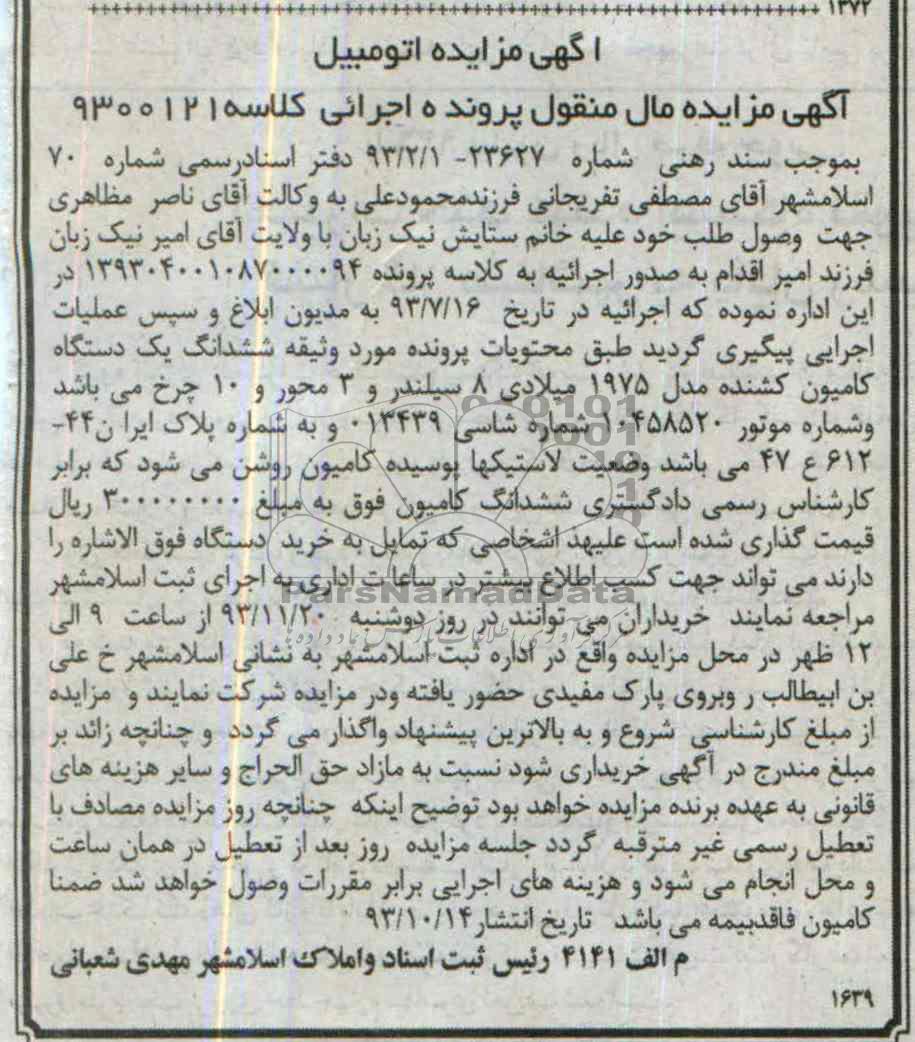 ۱۳۷۲
اگهی مزایده اتومبیل
آگهی مزایده مال منقول پرونده اجرائی کلاسه ۹۳۰۰۱۲۱
بموجب سند رهنی شماره ۲۳۶۲۷- ۹۳/۲/۱ دفتر اسنادرسمی شماره ۷۰
اسلامشهر آقای مصطفی تفریجانی فرزندمحمودعلی به وکالت آقای ناصر مظاهری
جهت وصول طلب خود علیه خانم ستایش نیک زبان با ولایت آقای امیر نیک زبان
فرزند امیر اقدام به صدور اجرائیه به کلاسه پرونده ۱۳۹۳۰۴۰۰۱۰۸۷۰۰۰۰۹۴ در
این اداره نموده که اجرائیه در تاریخ ۹۳/۷/۱۶ به مدیون ابلاغ و سپس عملیات
اجرایی پیگیری گردید طبق محتویات پرونده مورد وثیقه ششدانگ یک دستگاه
کامیون کشنده مدل ۱۹۷۵ میلادی ۸ سیلندر و ۳ محور و ۱۰ چرخ می باشد
وشماره موتور ۱۰۴۵۸۵۲۰ شماره شاسی ۰۱۳۴۳۹ و به شماره پلاک ایران ۴۴-
۶۱۲ ع ۴۷ می باشد وضعیت لاستیکها پوسیده کامیون روشن می شود که برابر
کارشناس رسمی دادگستری ششدانگ کامیون فوق به مبلغ ۳۰۰۰۰۰۰۰۰ ریال
قیمت گذاری شده است علیهذ اشخاصی که تمایل به خرید دستگاه فوق الاشاره را
دارند می تواند جهت کسب اطلاع بیشتر در ساعات اداری به اجرای ثبت اسلامشهر
ParsNamadData
مراجعه نمایند خریداران می توانند در روز دوشنبه ۹۳/۱۱/۲۰ از ساعت ۹ الی
۱۲ ظهر در محل مزایده واقع در اداره ثبت اسلامشهر به نشانی اسلامشهر خ علی
بن ابیطالب ر وبروی پارک مفیدی حضور یافته ودر مزایده شرکت نمایند و مزایده
از مبلغ کارشناسی شروع و به بالاترین پیشنهاد واگذار می گردد و چنانچه زائد بر
مبلغ مندرج در آگهی خریداری شود نسبت به مازاد حق الحراج و سایر هزینه های
قانونی به عهده برنده مزایده خواهد بود توضیح اینکه چنانچه روز مزایده مصادف با
تعطیل رسمی غیر مترقبه گردد جلسه مزایده روز بعد از تعطیل در همان ساعت
و محل انجام می شود و هزینه های اجرایی برابر مقررات وصول خواهد شد ضمنا
کامیون فاقدبیمه می باشد تاریخ انتشار ۹۳/۱۰/۱۴
م الف ۴۱۴۱ رئیس ثبت اسناد واملاک اسلامشهر مهدی شعبانی
۱۶۳۹